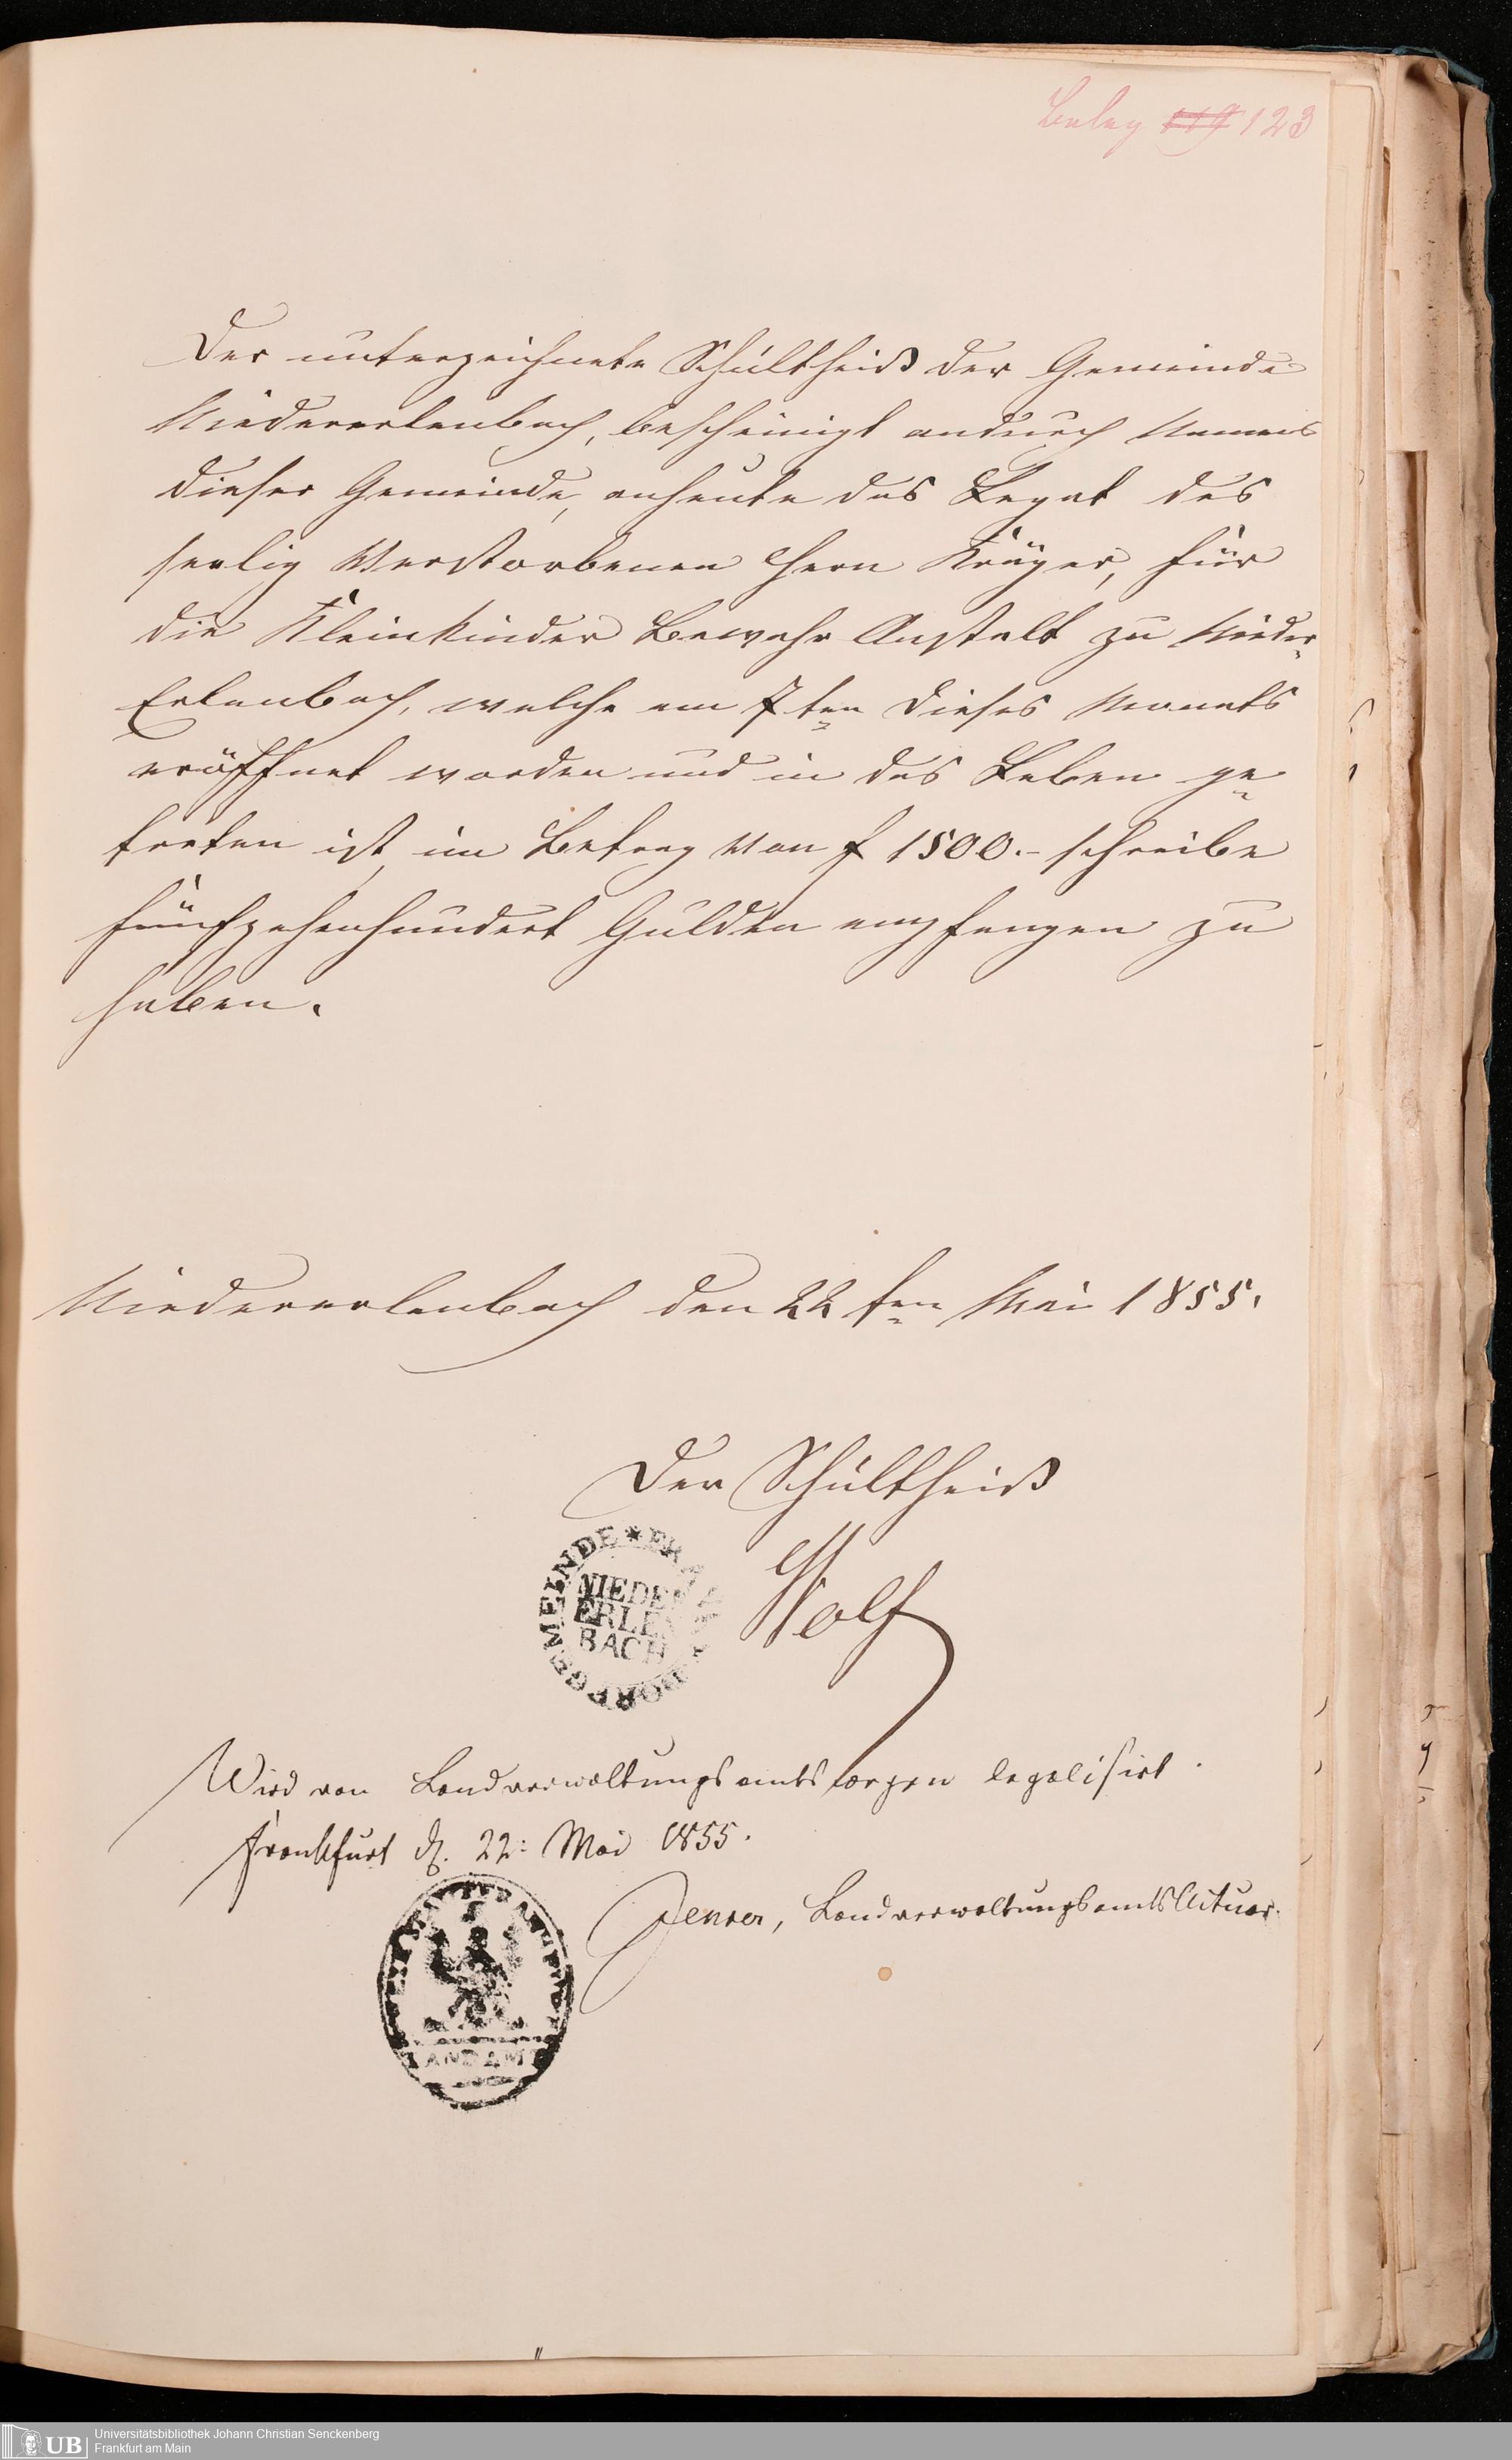 Beleg 119 123
Der unterzeichnete Schultheiß der Gemeinde
Niedererlenbach, bescheinigt andurch Namens
dieser Gemeinde, anheute das Legat des
seelig Verstorbenen Herrn Krüger, für
die Kleinkinder Bewahr Anstalt zu Nieder-
Erlenbach, welche am 7ten dieses Monats
eröffnet worden und in das Leben ge-
treten ist, im Betrag von f 1500.- schreibe
fünfzehenhundert Gulden empfangen zu
haben.
Niedererlenbach den 22ten Mai 1855.
Der Schultheiß
Wolf
DORFGEMEINDE * FRA
NIEDER
ERLEN
BACH
Wird von Landverwaltungsamtswegen legalisirt.
Frankfurt d. 22: Mai 1855.
Landverwaltungsamts Actuar.
LANDAMT
UB
Universitätsbibliothek Johann Christian Senckenberg
Frankfurt am Main